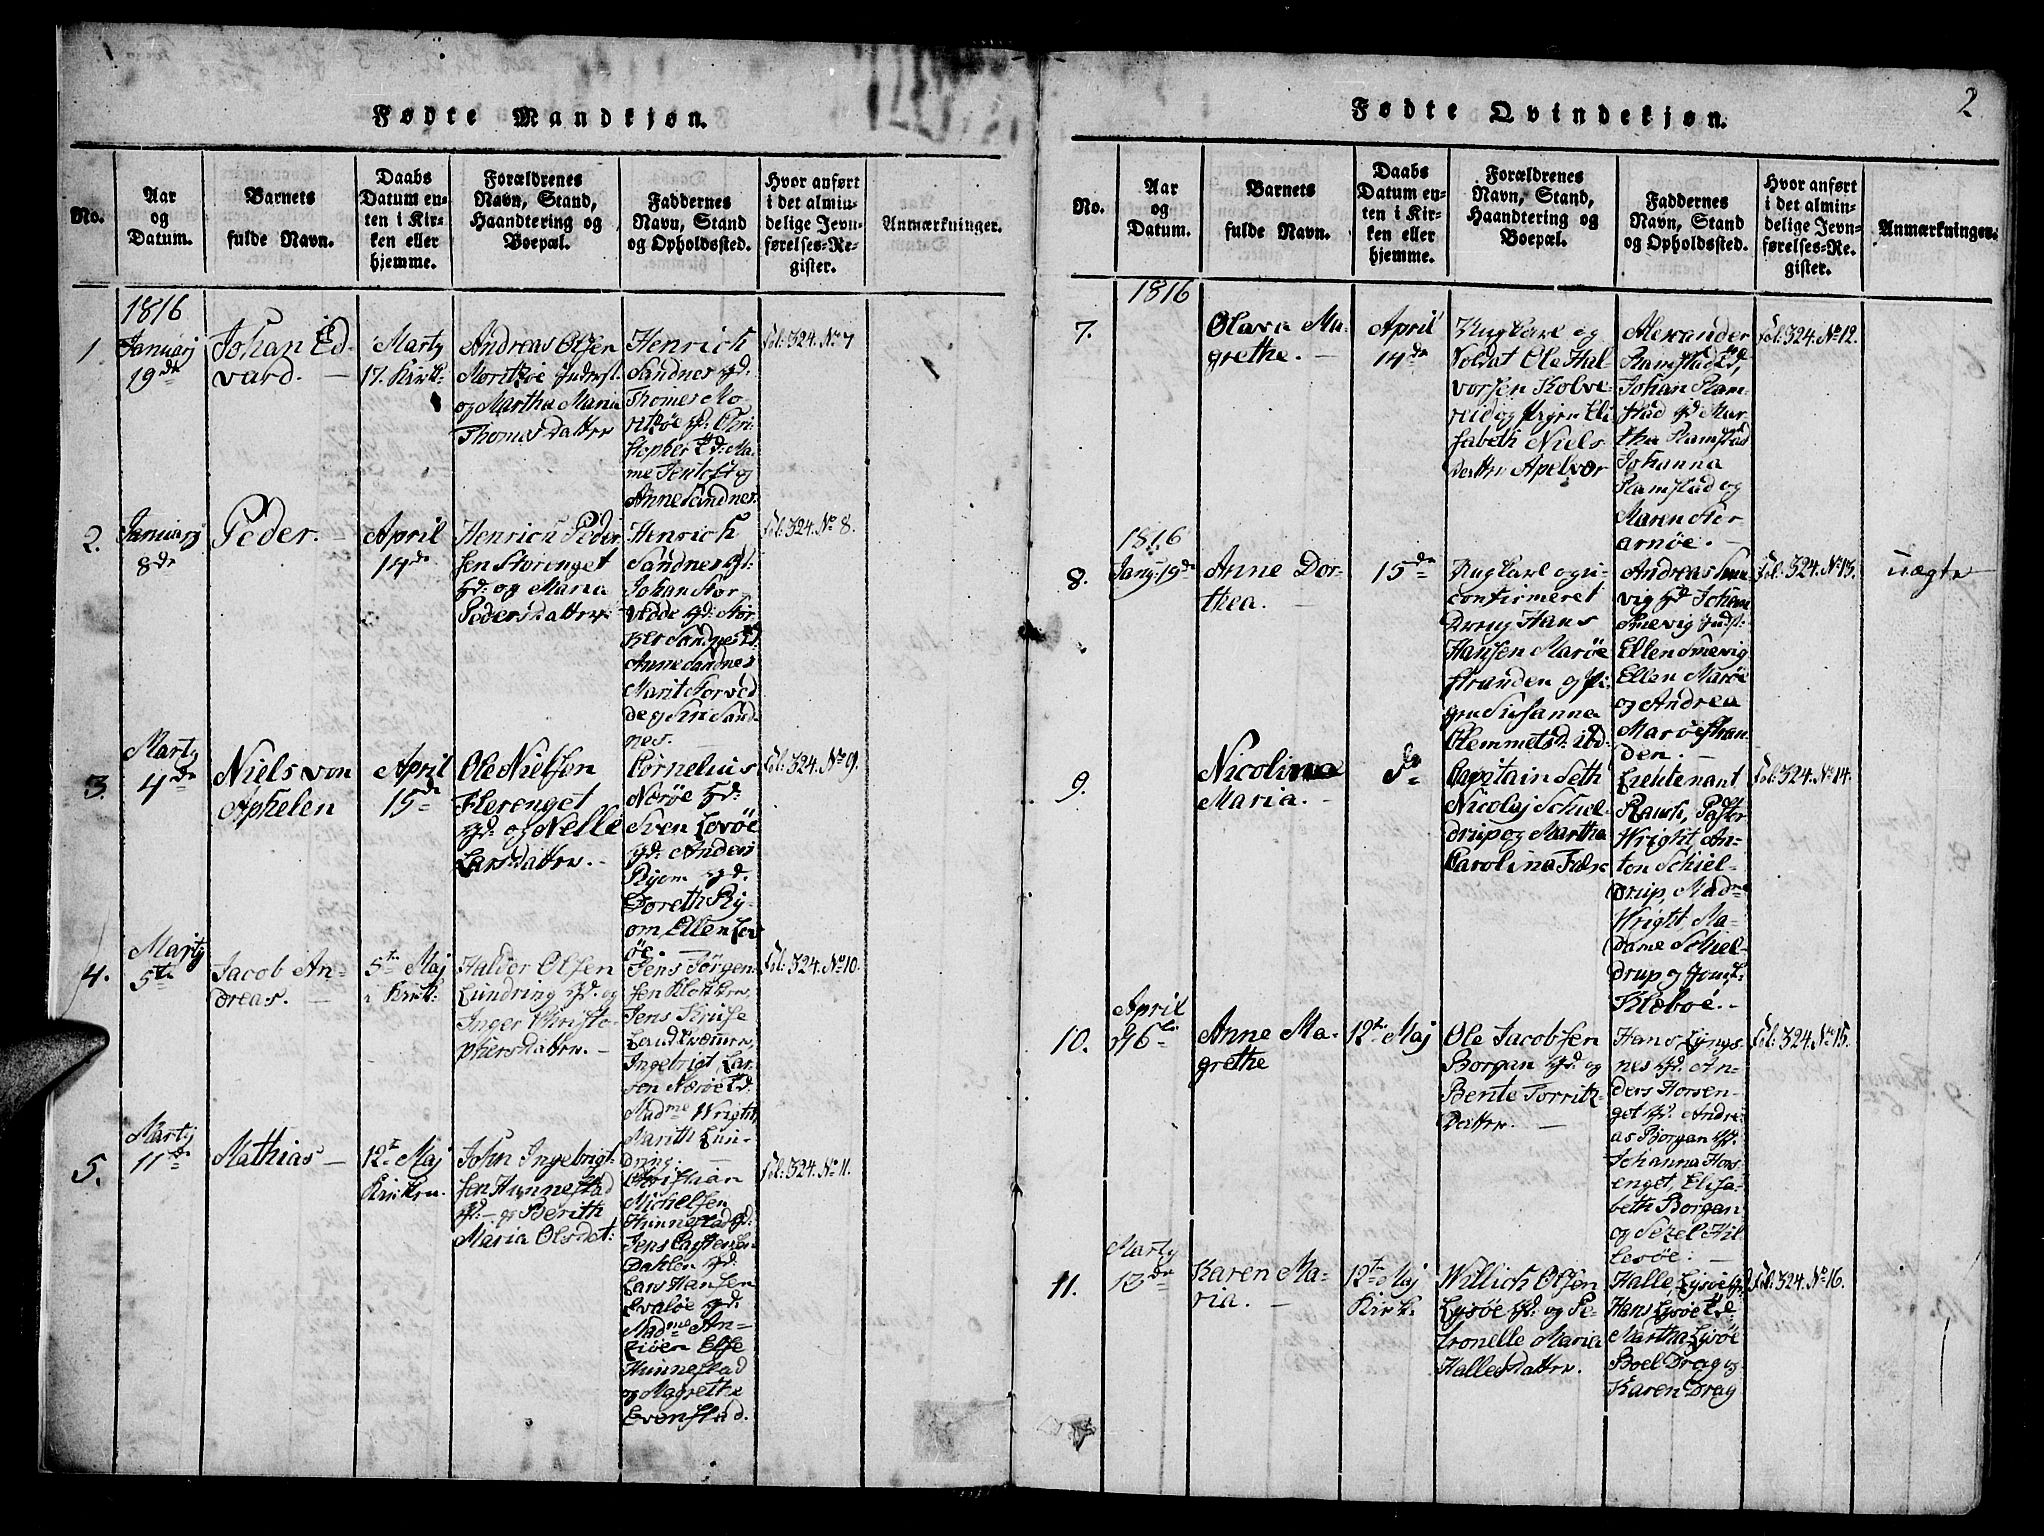 Fødte Mandkjøn.
No.
Aar
og
Datum.
Barnets
fulde Navn.
Daabs
Datum en-
ten i Kir-
ken eller
hjemme.
Forældrenes
Navn, Stand,
Haandtering og
Boepæl.
Faddernes
Navn, Stand
og Opholdssted.
Hvor anført
i det almin-
delige Jevn-
førelses-Re-
gister.
Anmærkninger.
1816
1.
Januarj
19de
Johan Ed-
vard. —
Martj
17. Kirk
Andreas Olsen
og Martha Maria
Thomesdatter
Henrich
Sandnes gd:
Thomes Mo-
Chri-
stopher
Anne Sandnes
fol: 324. No 7
2.
Januarj
8de
Peder. —
April
14de
Henrich Peder
sen Storenget
hd: og Maria
Pedersdatter
Henrich
Sandnes gd:
Johan Stor-
vedde gd: Stør-
ker Sandnes
Anne Sandnes
Marit Storved
de og Siri Sand
nes. —
fol: 324. No 8.
3.
Martj
4de
Niels von
Aphelen
April
15de
Ole Nielsen
Flerenget
gd: og Nelle
Larsdatter. —
Cornelius
Nærøe hd:
Sven Lovøe
gd: Anders
Ryom gd:
Doreth Ry-
om, Ellen Lov
øe. —
fol: 324. No 9.
4.
Martj
5te
Jacob An-
dreas. —
5te Maj
i Kirk:
Haldor Olsen
Lundring gd: og
Inger Christo-
phersdatter. —
Jens Jørgen-
sen Klokker,
Jens Kruse
Landkræmer,
Ingebrigt Lar-
sen Nærøe
Madme Wright,
Marith Lun-
dring. —
fol: 324. No 10.
5.
Martj
11de
Mathias —
12te Maj
Kirken.
John Ingebrigt-
sen Hunnestad
gd: — og Berith
Maria Olsdat:
Christian
Michelsen
Hunnestad gd:
Dahlen gd:
Lars Hansen
Evaløe gd:
Madme An-
Else
Hunnestad
og Magrethe
Evenstad.
fol: 324. No 11.
2
Fødte Qvindekjøn.
No.
Aar
og
Datum.
Barnets
fulde Navn.
Daabs
Datum en-
ten i Kir-
ken eller
hjemme.
Forældrenes
Navn, Stand,
Haandtering og
Boepæl.
Faddernes
Navn, Stand
og Opholdssted.
Hvor anført
i det almin-
delige Jevn-
førelses-Re-
gister.
Anmærkninger.
1816
7.
Olava Ma-
grethe. —
April
14de
Ungkarl og
Soldat Ole Hal-
vorsen Kolve-
reid og Pigen Eli
sabeth Niels
datter Apelvær
Alexander
Ramstad
Johan Ram-
stad gd: Mar-
tha Ramstad
Johanna
Ramstad og
Maren Stor
arnøe. —
fol: 324. No 12.
8.
1816
Janj: 19de
Anne Dor-
thea. —
15de
Ungkarl og u-
confirmeret
Dreng Hans
Hansen Marøe
stranden og Pi-
gen Susanna
Clemmetsd:
Andreas
vig gd: Johan
Ellen Smevig
Ellen Marøe
og Andrea
Marøestran
den. —
fol: 324. No 13.
uægte
9.
Nicolina
Maria. —
do
Capitain Seth
Nicolaj Schiel-
drup og Martha
Carolina Falk
Lieutenant
Rauch, Pastor
Wright, An-
ton Schiel-
drup, Madme
Wright Ma-
dame Schiel-
drup og Jomf.
Klæboe. —
fol: 324. No 14.
10.
April
Anne Ma-
grethe
12te Maj
Ole Jacobsen
Borgan gd: og
Bente Torrits-
datter. —
Hans Lyngs-
nes gd: An-
ders Horsen-
get gd: Andre-
as Borgan gd:
Johanna Hors
enget, Elisa-
beth Borgan
og Sezel Hil-
lesøe: —
fol: 324. No 15.
11.
Martj
13de
Karen Ma-
ria. —
12te Maj
Kirk:
Willich Olsen
Lysøe gd: og Pe-
tronelle Maria
Hallesdatter.
Halle Lysøe gd:
Hans Lysøe
Martha Lysøe
Boel Drag og
Karen Drag
fol: 324. No 16.